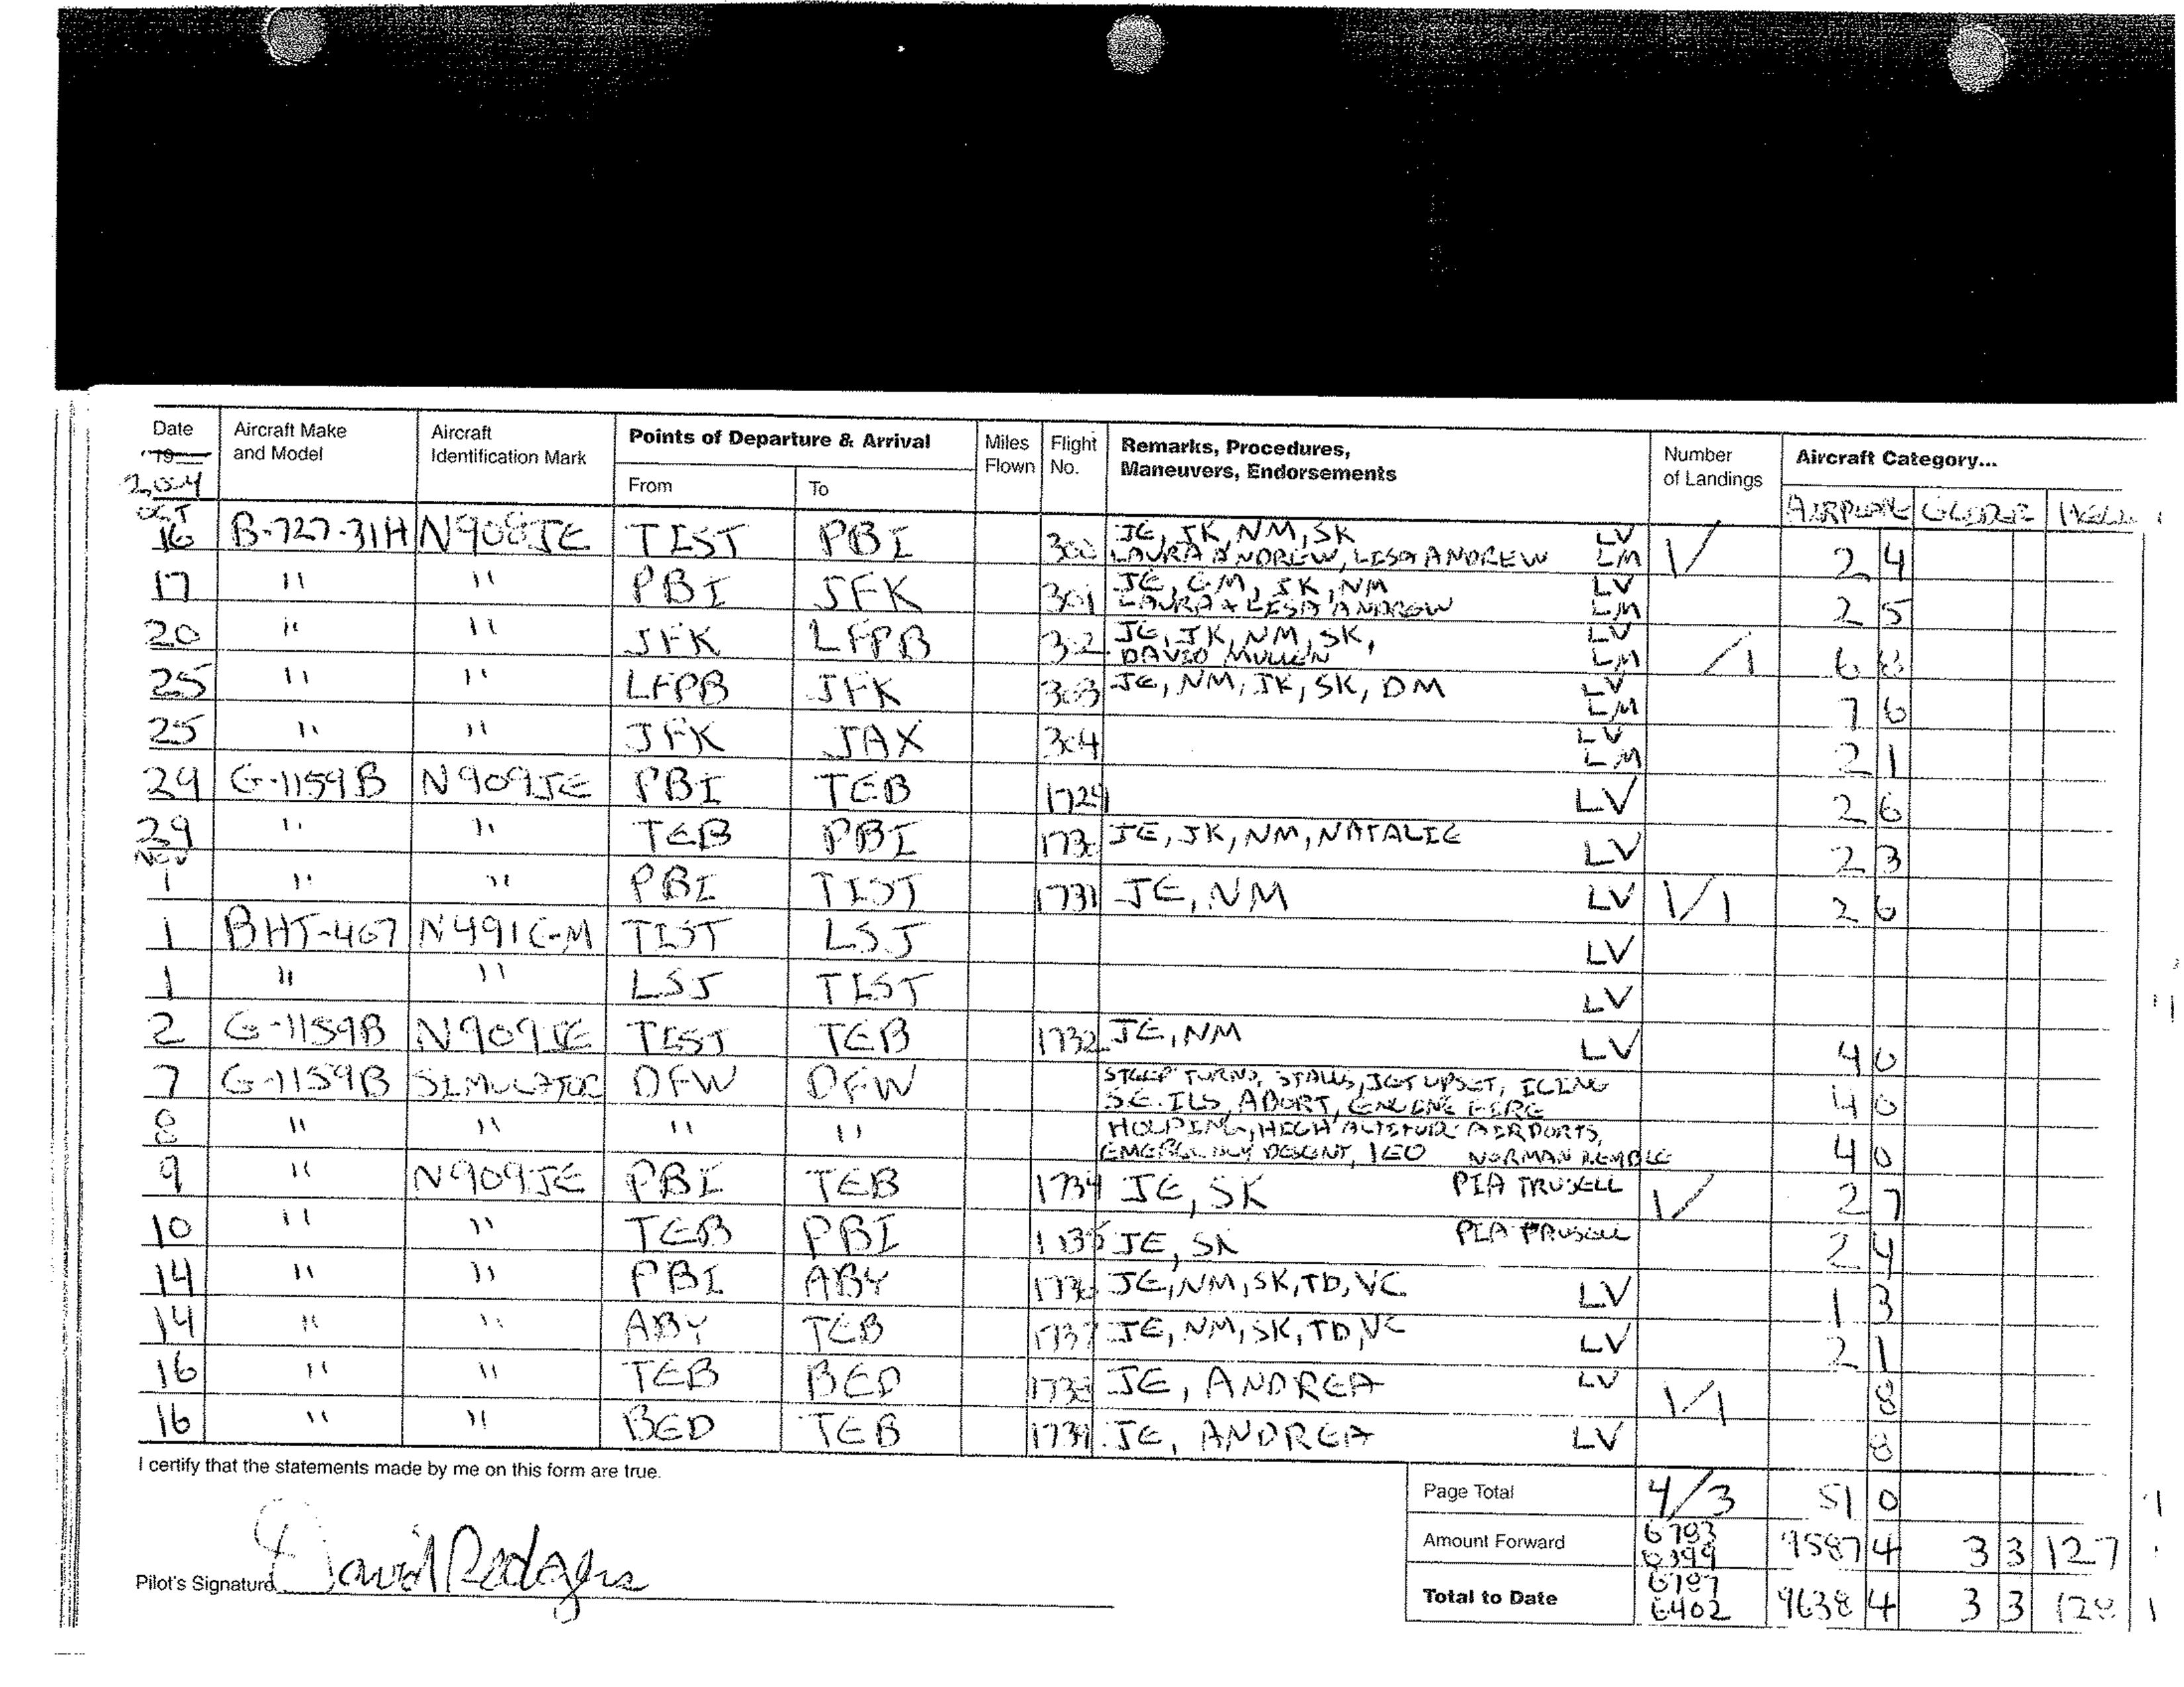 Date Aircraft Make Aircraft Points of Departure & Arrival Miles Flight Remarks, Procedures, Number Aircraft Category...
19 and Model Identification Mark From To Flown No. Maneuvers, Endorsements of Landings
2004 AIRPLANE GLIDER HELI
OCT
16 B-727-31H N908JE TIST PBI 300 JE, JK, NM, SK LV 1/ 2 4
LAURA ANDREW, LISA ANDREW LM
17 " " PBI JFK 301 JE, GM, JK, NM LV 2 5
LAURA & LISA ANDREW LM
20 " " JFK LFPB 302 JE, JK, NM, SK, LV /1 6 8
DAVID MULLEN LM
25 " " LFPB JFK 303 JE, NM, JK, SK, DM LV 7 6
LM
25 " " JFK JAX 304 LV 2 1
LM
29 G-1159B N909JE PBI TEB 1729 LV 2 6
29 " " TEB PBI 1730 JE, JK, NM, NATALIE LV 2 3
NOV
1 " " PBI TIST 1731 JE, NM LV 1/1 2 6
1 BHT-407 N491GM TIST LSJ LV
1 " " LSJ TIST LV
2 G-1159B N909JE TIST TEB 1732 JE, NM LV 4 0
7 G-1159B SIMULATOR DFW DFW STEEP TURNS, STALLS, JET UPSET, ICING 4 0
S.E. ILS, ABORT, ENGINE FIRE
8 " " " " HOLDING, HIGH ALTITUDE AIRPORTS, 4 0
EMERGENCY DESCENT, NORMAN
9 " N909JE PBI TEB 1734 JE, SK PIA TRUSELL 1/ 2 7
10 " " TEB PBI 1735 JE, SK PIA TRUSELL 2 4
14 " " PBI ABY 1736 JE, NM, SK, TD, VC LV 1 3
14 " " ABY TEB 1737 JE, NM, SK, TD, VC LV 2 1
16 " " TEB BED 1738 JE, ANDREA LV 1/1 8
16 " " BED TEB 1739 JE, ANDREA LV 8
I certify that the statements made by me on this form are true.
Page Total 4/3 51 0 1
Amount Forward 6793 6399 9587 4 3 3 127
Pilot's Signature David Rodgers
Total to Date 6797 6402 9638 4 3 3 128 1